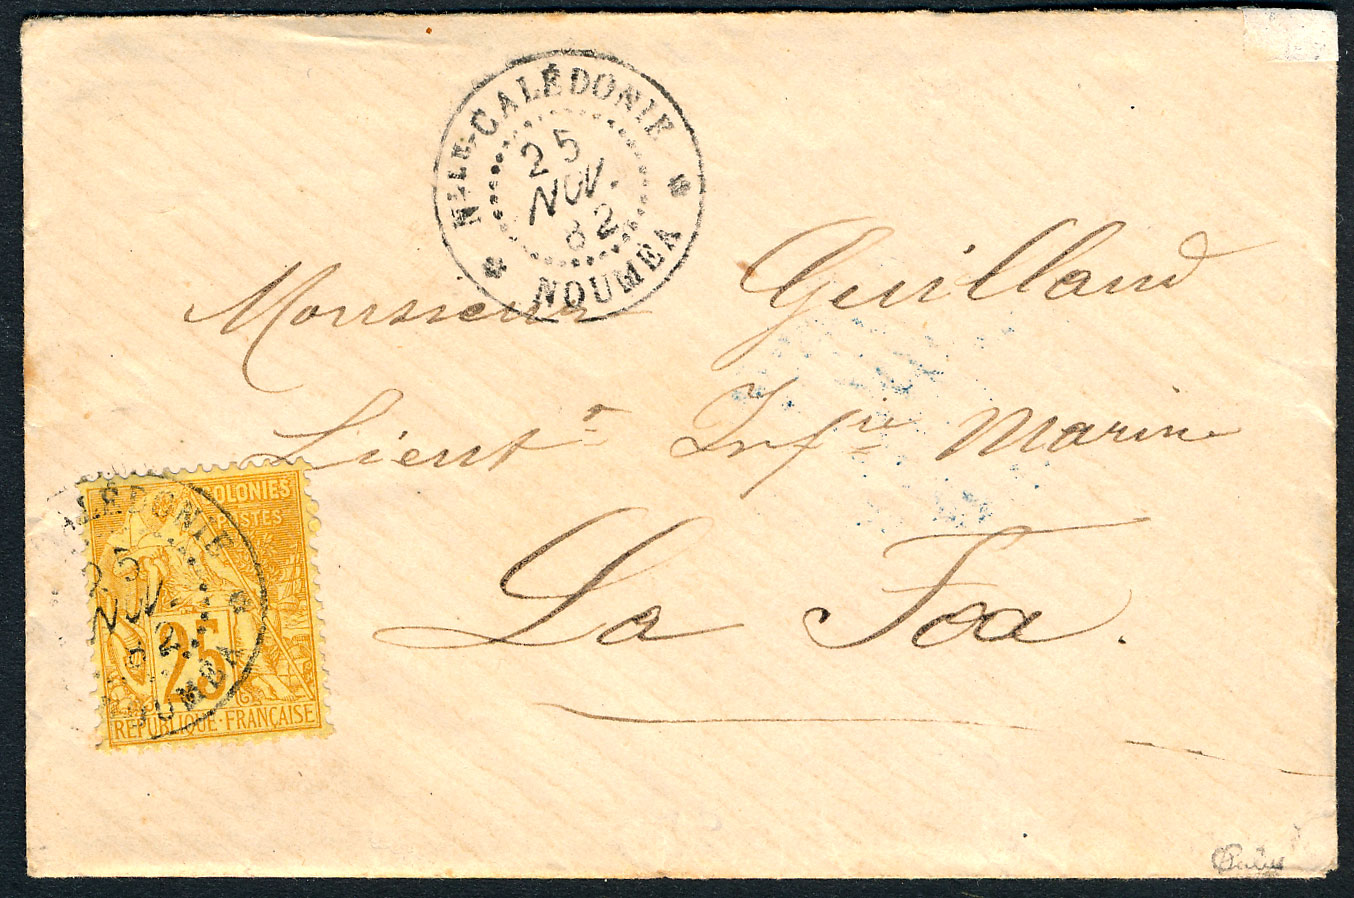 Nlle-CALÉDONIE
25
NOV.
82
NOUMEA
Monsieur Guilland
Lieutt Infrie Marine
La Foa.
COLONIES
POSTES
25
REPUBLIQUE·FRANÇAISE
LÉDONIE
25
NOV.
82
OUMEA